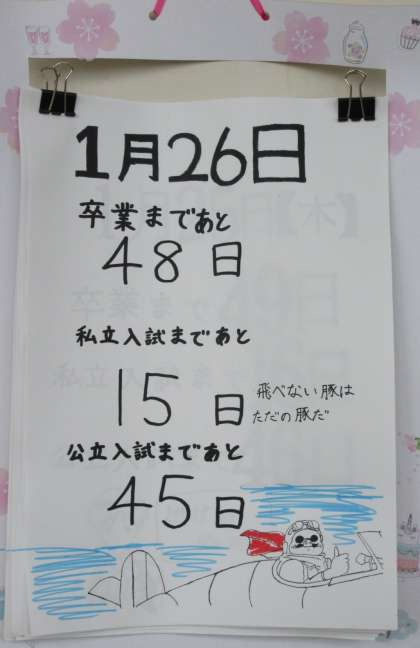 1月26日
卒業まであと
48日
私立入試まであと
15日
飛べない豚は
ただの豚だ
公立入試まであと
45日